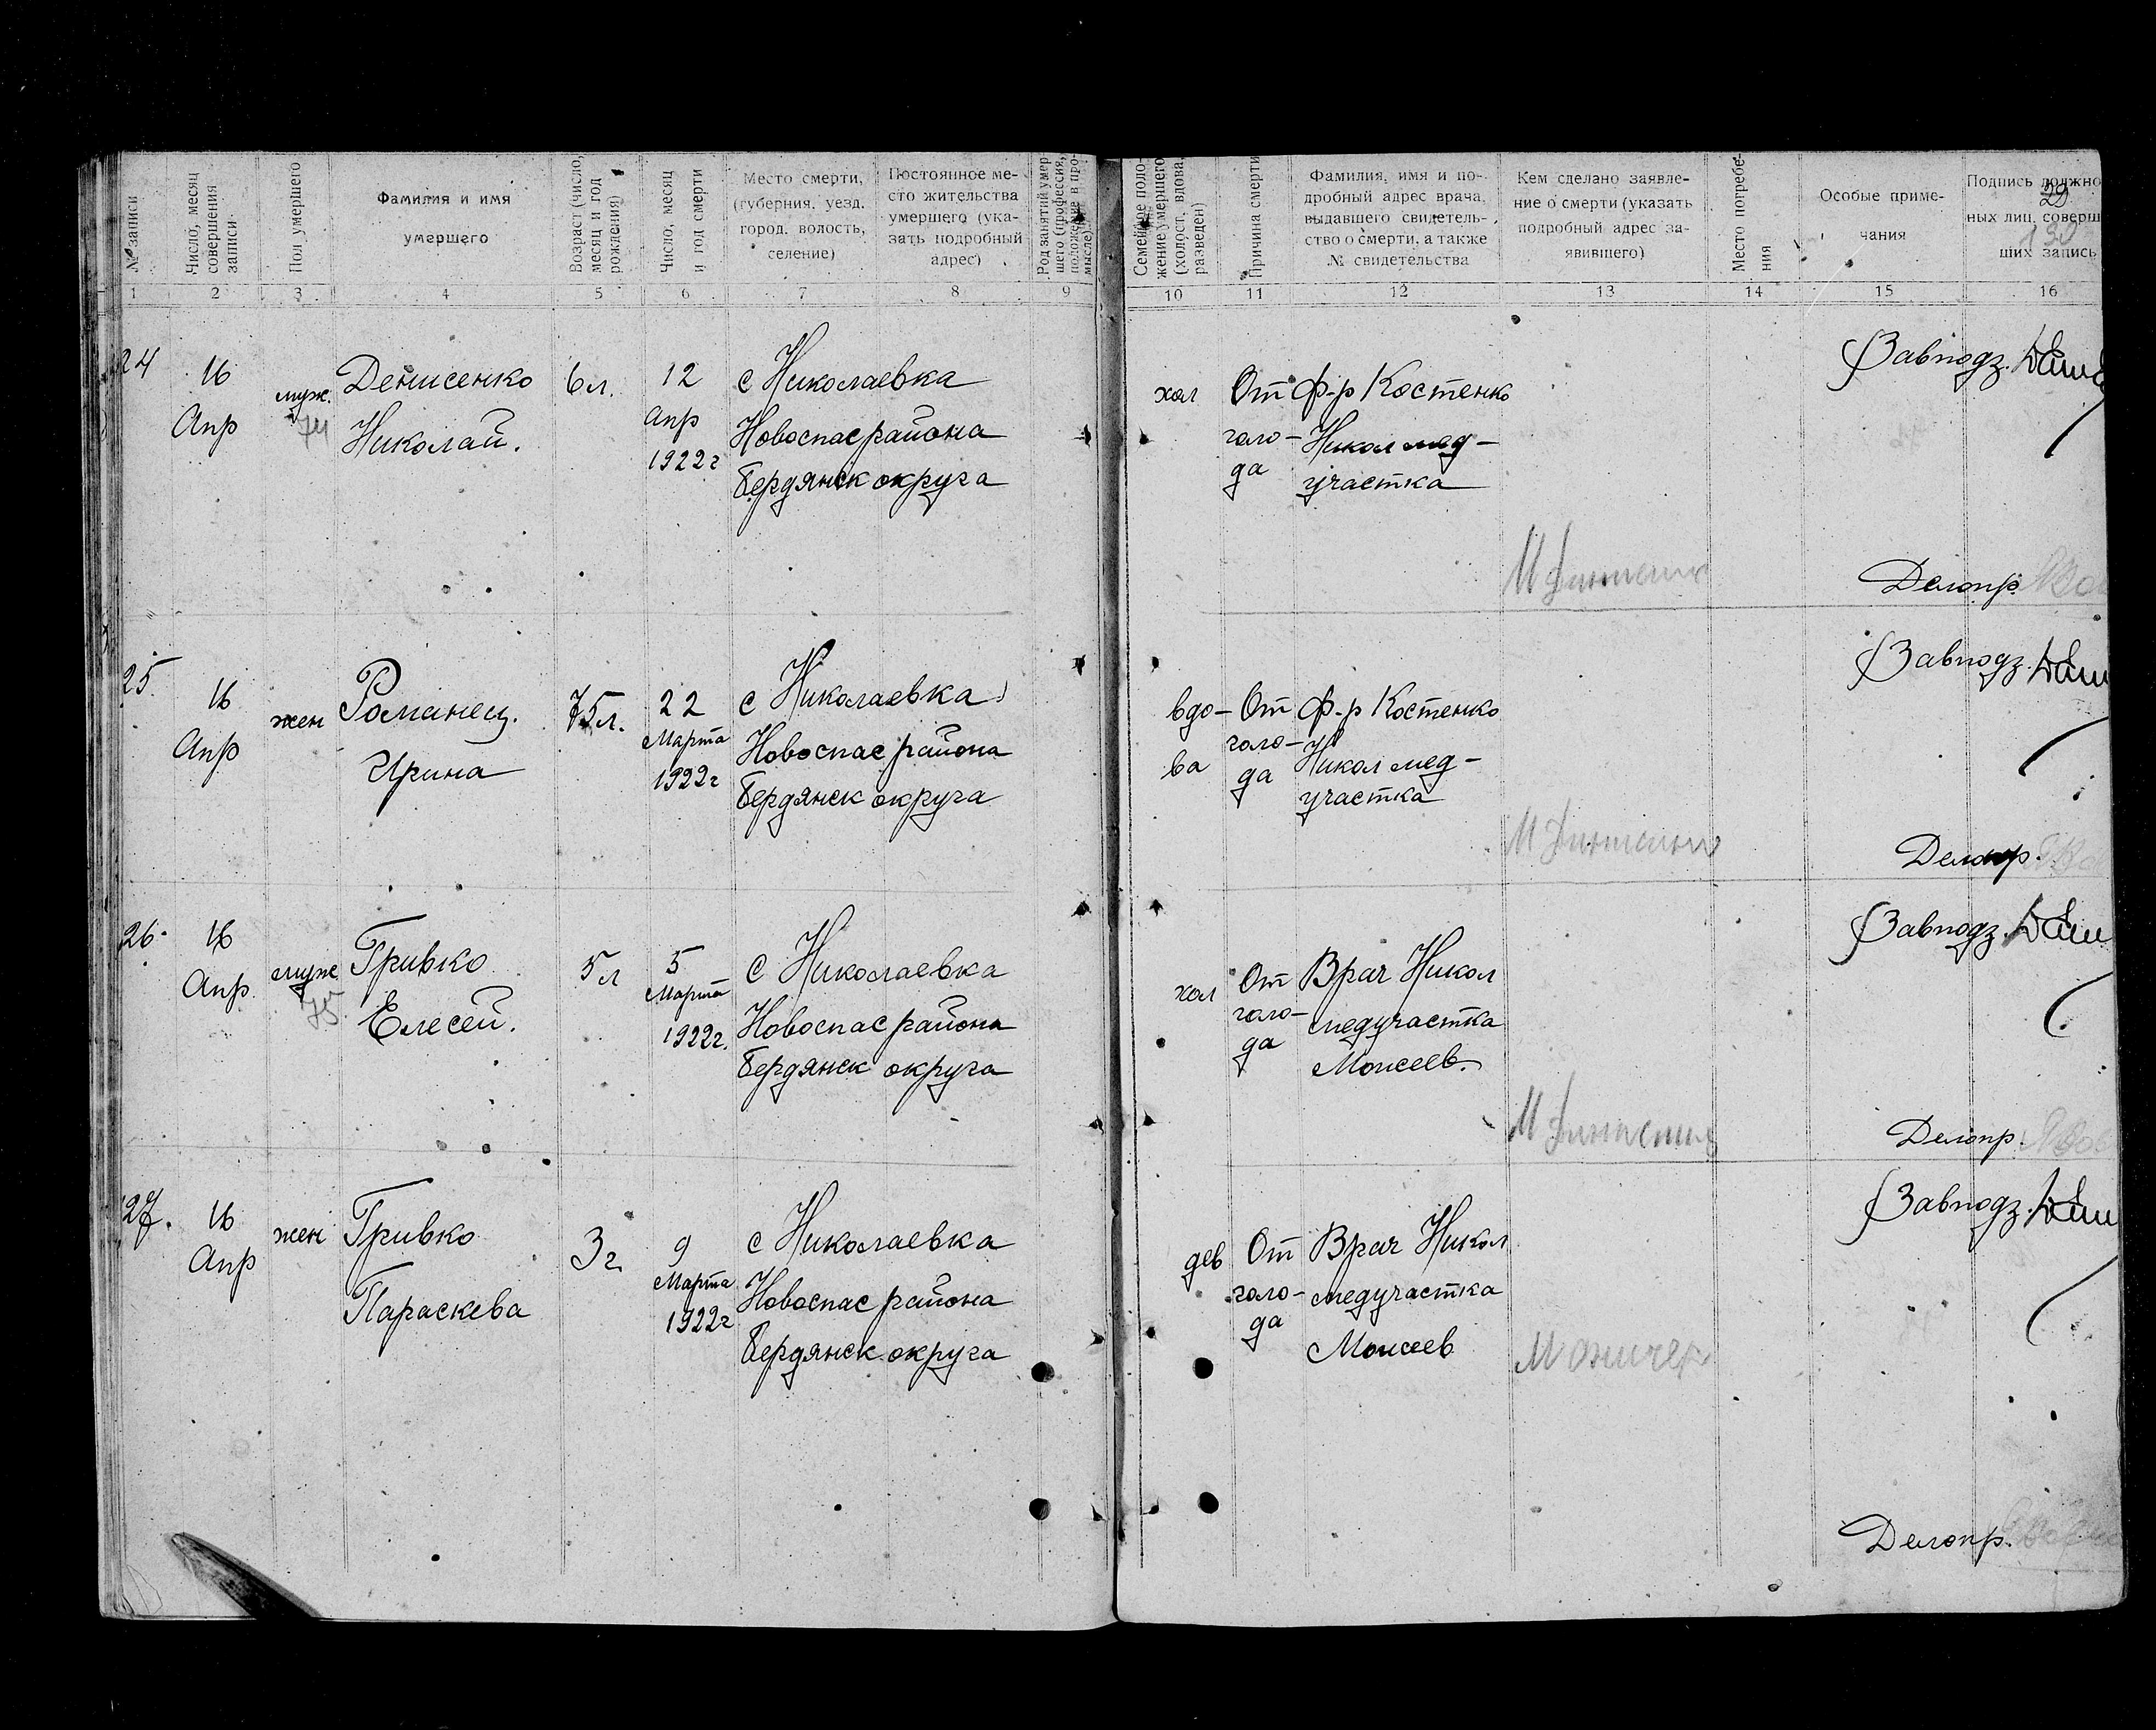 № записи
Число, месяц
совершения
записи
Пол умершего
Фамилия и имя
умершего
Возраст (число,
месяц и год
рождения)
Число, месяц
и год смерти
Место смерти,
(губерния, уезд,
город, волость,
селение)
Постоянное ме-
сто жительства
умершего (ука-
зать подробный
адрес)
Род занятий умер-
шего (профессия,
положение в про-
мысле)
Семейное поло-
жение умершего
(холост, вдова,
разведен)
Причина смерти
Фамилия, имя и по-
дробный адрес врача,
выдавшего свидетель-
ство о смерти, а также
№ свидетельства
Кем сделано заявле-
ние о смерти (указать
подробный адрес за-
явившего)
Место погребе-
ния
Особые приме-
чания
Подпись должно
ных лиц, соверш
ших запись
29
130
1 2 3 4 5 6 7 8 9 10 11 12 13 14 15 16
24
16
Апр
муж.
74
Денисенко
Николай.
6 л.
12
апр
1922 г
с Николаевка
Новоспас района
Бердянск округа
хол
От
голо-
да
Ф-р Костенко
Никол мед-
участка
Завподз.
Делопр.
25
16
Апр
жен
Романец.
Ирина
75 л.
22
Марта
1922 г
с Николаевка
Новоспас района
Бердянск округа
вдо-
ва
От
голо-
да
Ф-р Костенко
Никол мед-
участка
Завподз.
Делопр.
26.
16
Апр.
муж
75
Гривко
Елесей.
5 л
5
Марта
1922 г.
с Николаевка
Новоспас района
Бердянск округа
хол
От
голо-
да
Врач Никол
медучастка
Моисеев.
Завподз.
Делопр.
27.
16
Апр
жен
Гривко
Параскева
3 г.
9
Марта
1922 г
с Николаевка
Новоспас района
Бердянск округа
дев
От
голо-
да
Врач Никол
медучастка
Моисеев
Завподз.
Делопр.